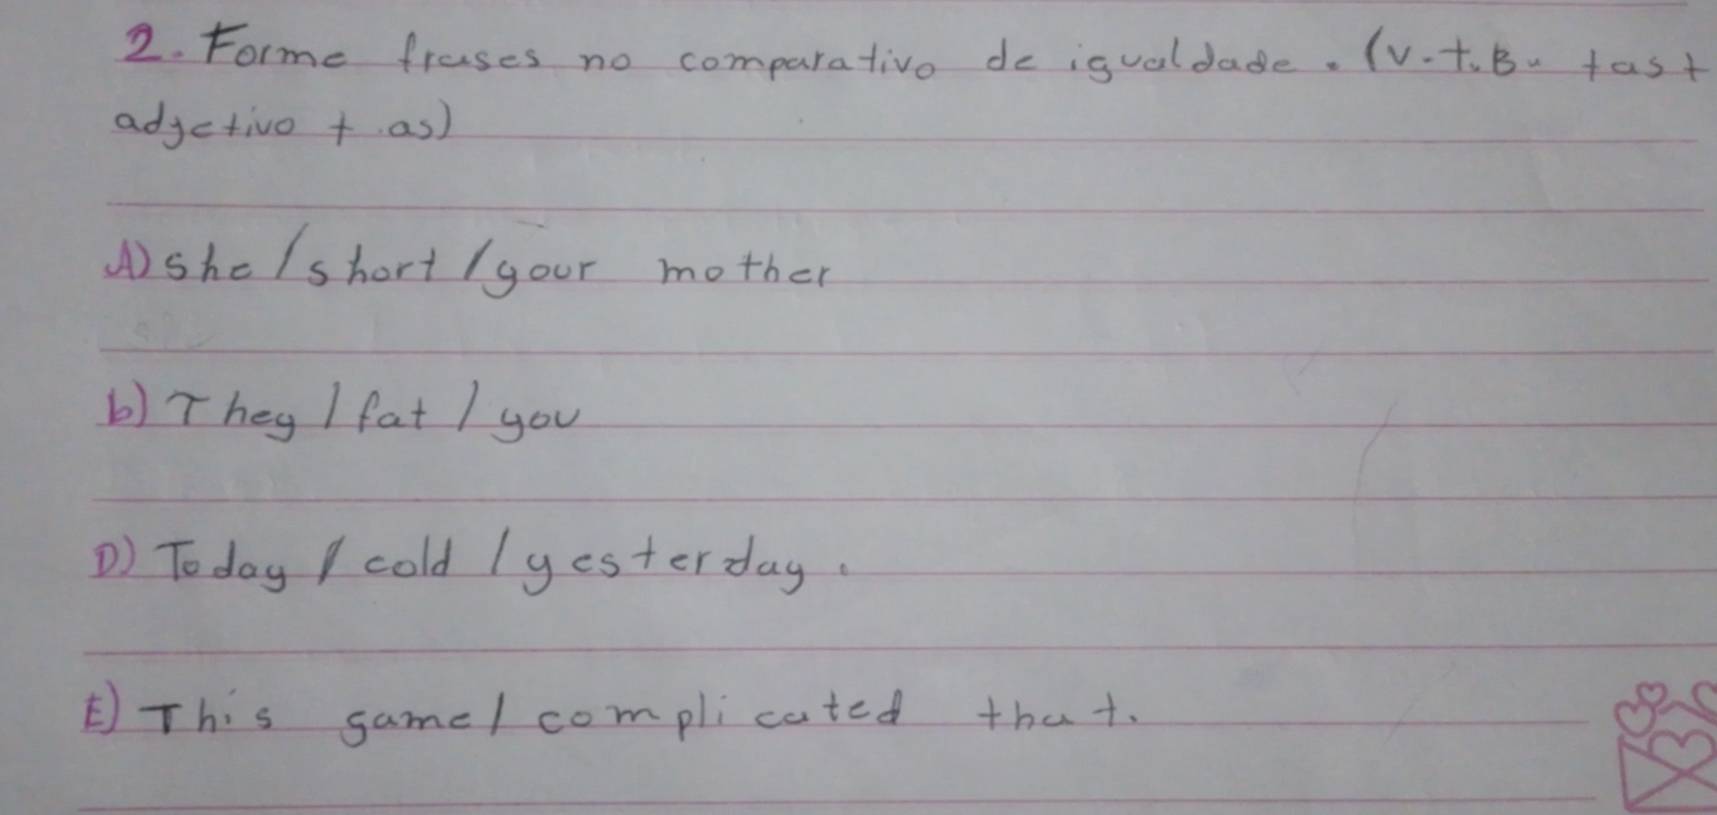 2. Forme frases no comparativo de igualdade. (V. t. B. + as +
adjetivo + as)
A) She / short / your mother
b) They / fat / you
D) Today / cold / yesterday.
E) This game / complicated that.